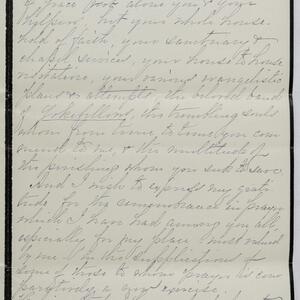 of Grace not alone you & your
helpers, but your whole house-
hold of faith, your sanctuary &
chapel services, your house to house
visitations, your various evangelistic
plans & attempts, the beloved band
of Yokefellows, the trembling souls
whom from time to time you com
mend to me, & the multitude of
the perishing whom you seek to save.
And I wish to express my grat
itude for the remembrance in prayer
which I have had among you all,
especially for my place, most valued
by me in the supplications of
some of those to whom prayer is com
paratively a new exercise.